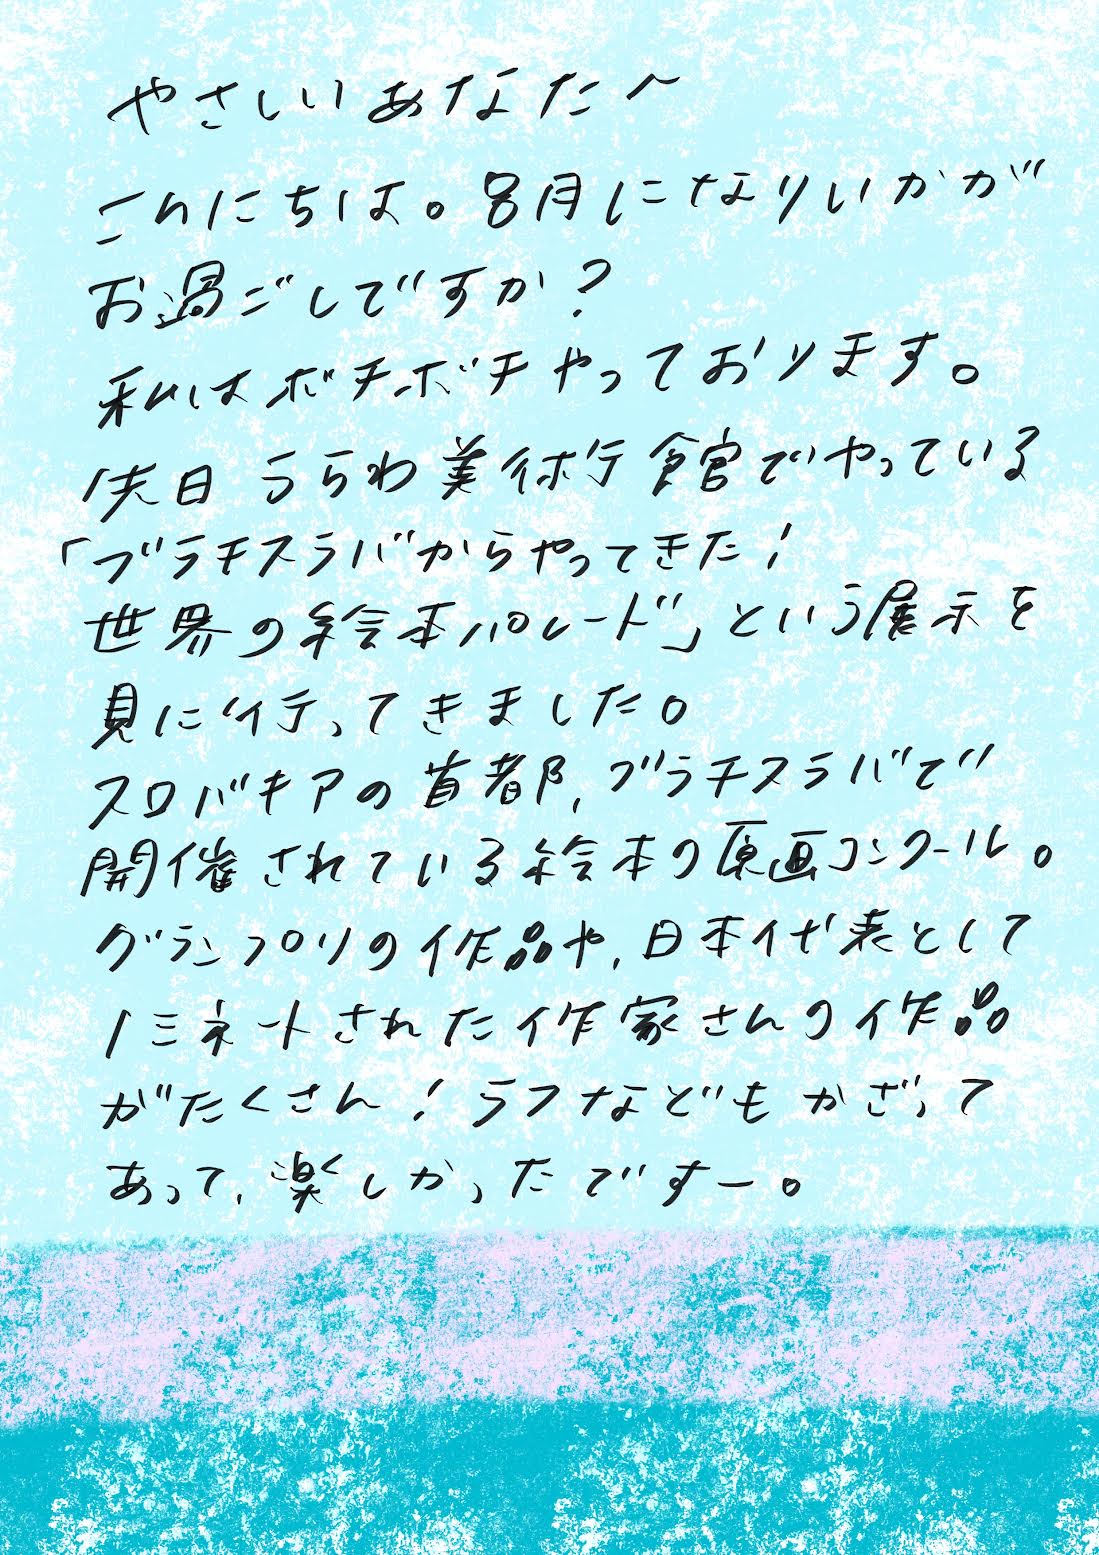 やさしいあなたへ
こんにちは。8月になりいかが
お過ごしですか?
私はボチボチやっております。
先日 うらわ美術館でやっている
「ブラチスラバからやってきた!
世界の絵本パレード」という展示を
見に行ってきました。
スロバキアの首都、ブラチスラバで
開催されている絵本の原画コンクール。
グランプリの作品や、日本代表として
ノミネートされた作家さんの作品
がたくさん!ラフなどもかざって
あって、楽しかったですー。